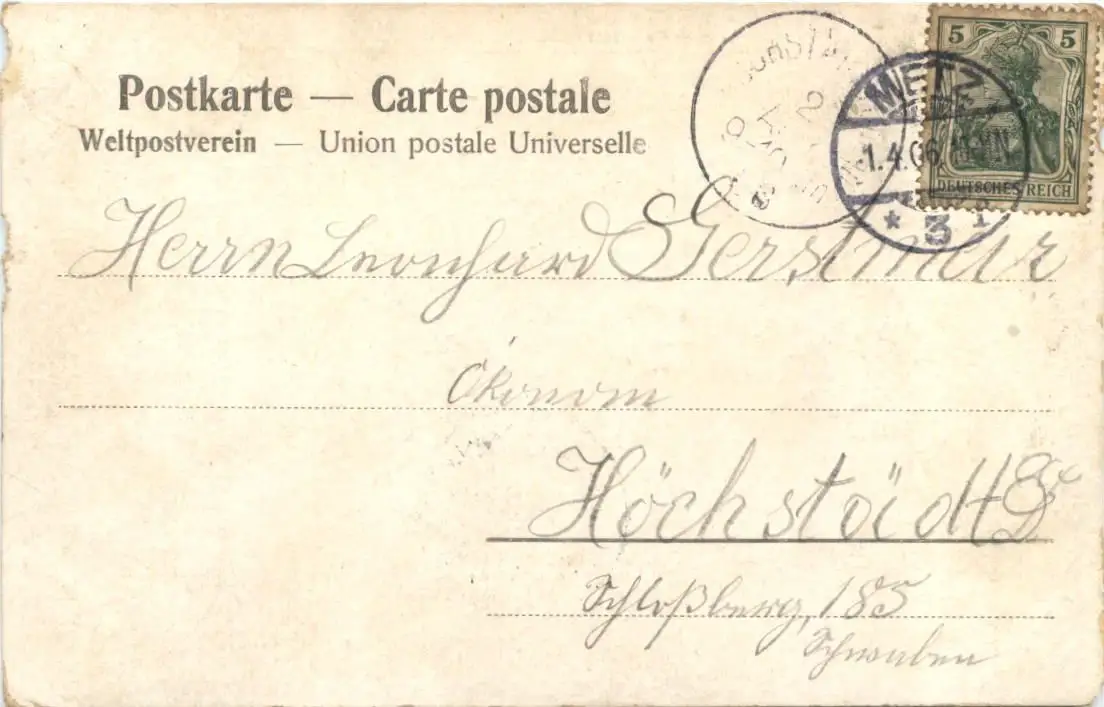 Postkarte — Carte postale
Weltpostverein — Union postale Universelle
5 5
METZ
1.4.06
DEUTSCHES REICH
* 3
Herrn Leonhard Gerstmeir
Ökonom
Höchstädt
Schloßberg, 185
Schwaben